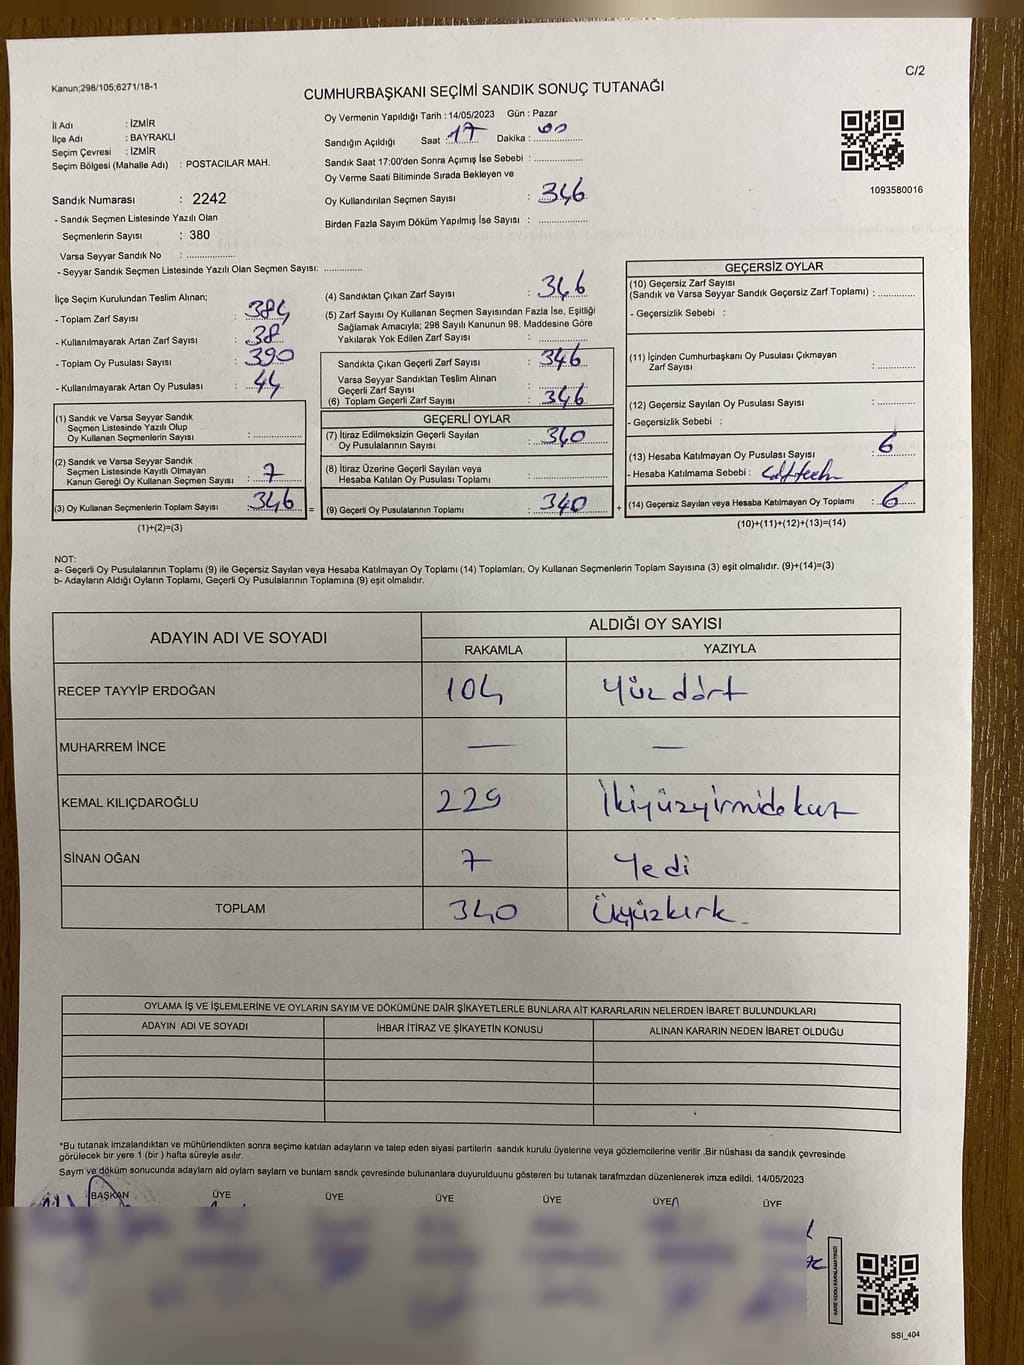 Kanun;298/105;6271/18-1
C/2
CUMHURBAŞKANI SEÇİMİ SANDIK SONUÇ TUTANAĞI
İl Adı : İZMİR
İlçe Adı : BAYRAKLI
Seçim Çevresi : İZMİR
Seçim Bölgesi (Mahalle Adı) : POSTACILAR MAH.
Oy Vermenin Yapıldığı Tarih : 14/05/2023 Gün : Pazar
Sandığın Açıldığı Saat : 17 Dakika : 00
Sandık Saat 17:00'den Sonra Açımış İse Sebebi : ..............
Oy Verme Saati Bitiminde Sırada Bekleyen ve
Oy Kullandırılan Seçmen Sayısı : 346
Birden Fazla Sayım Döküm Yapılmış İse Sayısı : ..............
1093580016
Sandık Numarası : 2242
- Sandık Seçmen Listesinde Yazılı Olan
Seçmenlerin Sayısı : 380
Varsa Seyyar Sandık No : ..............
- Seyyar Sandık Seçmen Listesinde Yazılı Olan Seçmen Sayısı: ..............
İlçe Seçim Kurulundan Teslim Alınan;
- Toplam Zarf Sayısı : 384
- Kullanılmayarak Artan Zarf Sayısı : 38
- Toplam Oy Pusulası Sayısı : 390
- Kullanılmayarak Artan Oy Pusulası : 44
(1) Sandık ve Varsa Seyyar Sandık
Seçmen Listesinde Yazılı Olup
Oy Kullanan Seçmenlerin Sayısı : ..............
(2) Sandık ve Varsa Seyyar Sandık
Seçmen Listesinde Kayıtlı Olmayan
Kanun Gereği Oy Kullanan Seçmen Sayısı : 7
(3) Oy Kullanan Seçmenlerin Toplam Sayısı : 346 =
(1)+(2)=(3)
(4) Sandıktan Çıkan Zarf Sayısı : 346
(5) Zarf Sayısı Oy Kullanan Seçmen Sayısından Fazla İse, Eşitliği
Sağlamak Amacıyla; 298 Sayılı Kanunun 98. Maddesine Göre
Yakılarak Yok Edilen Zarf Sayısı : ..............
Sandıkta Çıkan Geçerli Zarf Sayısı : 346
Varsa Seyyar Sandıktan Teslim Alınan
Geçerli Zarf Sayısı : ..............
(6) Toplam Geçerli Zarf Sayısı : 346
GEÇERLİ OYLAR
(7) İtiraz Edilmeksizin Geçerli Sayılan
Oy Pusulalarının Sayısı : 340
(8) İtiraz Üzerine Geçerli Sayılan veya
Hesaba Katılan Oy Pusulası Toplamı : ..............
(9) Geçerli Oy Pusulalarının Toplamı : 340 +
GEÇERSİZ OYLAR
(10) Geçersiz Zarf Sayısı
(Sandık ve Varsa Seyyar Sandık Geçersiz Zarf Toplamı) : ..............
- Geçersizlik Sebebi :
(11) İçinden Cumhurbaşkanı Oy Pusulası Çıkmayan
Zarf Sayısı : ..............
(12) Geçersiz Sayılan Oy Pusulası Sayısı : ..............
- Geçersizlik Sebebi :
(13) Hesaba Katılmayan Oy Pusulası Sayısı : 6
- Hesaba Katılmama Sebebi :
(14) Geçersiz Sayılan veya Hesaba Katılmayan Oy Toplamı : 6
(10)+(11)+(12)+(13)=(14)
NOT:
a- Geçerli Oy Pusulalarının Toplamı (9) ile Geçersiz Sayılan veya Hesaba Katılmayan Oy Toplamı (14) Toplamları, Oy Kullanan Seçmenlerin Toplam Sayısına (3) eşit olmalıdır. (9)+(14)=(3)
b- Adayların Aldığı Oyların Toplamı, Geçerli Oy Pusulalarının Toplamına (9) eşit olmalıdır.
ADAYIN ADI VE SOYADI ALDIĞI OY SAYISI
RAKAMLA YAZIYLA
RECEP TAYYİP ERDOĞAN 104 Yüz dört
MUHARREM İNCE — —
KEMAL KILIÇDAROĞLU 229 İkiyüzyirmidokuz
SİNAN OĞAN 7 Yedi
TOPLAM 340 Üçyüzkırk
OYLAMA İŞ VE İŞLEMLERİNE VE OYLARIN SAYIM VE DÖKÜMÜNE DAİR ŞİKAYETLERLE BUNLARA AİT KARARLARIN NELERDEN İBARET BULUNDUKLARI
ADAYIN ADI VE SOYADI İHBAR İTİRAZ VE ŞİKAYETİN KONUSU ALINAN KARARIN NEDEN İBARET OLDUĞU
*Bu tutanak imzalandıktan ve mühürlendikten sonra seçime katılan adayların ve talep eden siyasi partilerin sandık kurulu üyelerine veya gözlemcilerine verilir .Bir nüshası da sandık çevresinde
görülecek bir yere 1 (bir ) hafta süreyle asılır.
Sayım ve döküm sonucunda adaylarm ald oylarm saylarm ve bunlarm sandk çevresinde bulunanlara duyurulduunu gösteren bu tutanak tarafmzdan düzenlenerek imza edildi. 14/05/2023
BAŞKAN ÜYE ÜYE ÜYE ÜYE ÜYE ÜYE
SSI_404